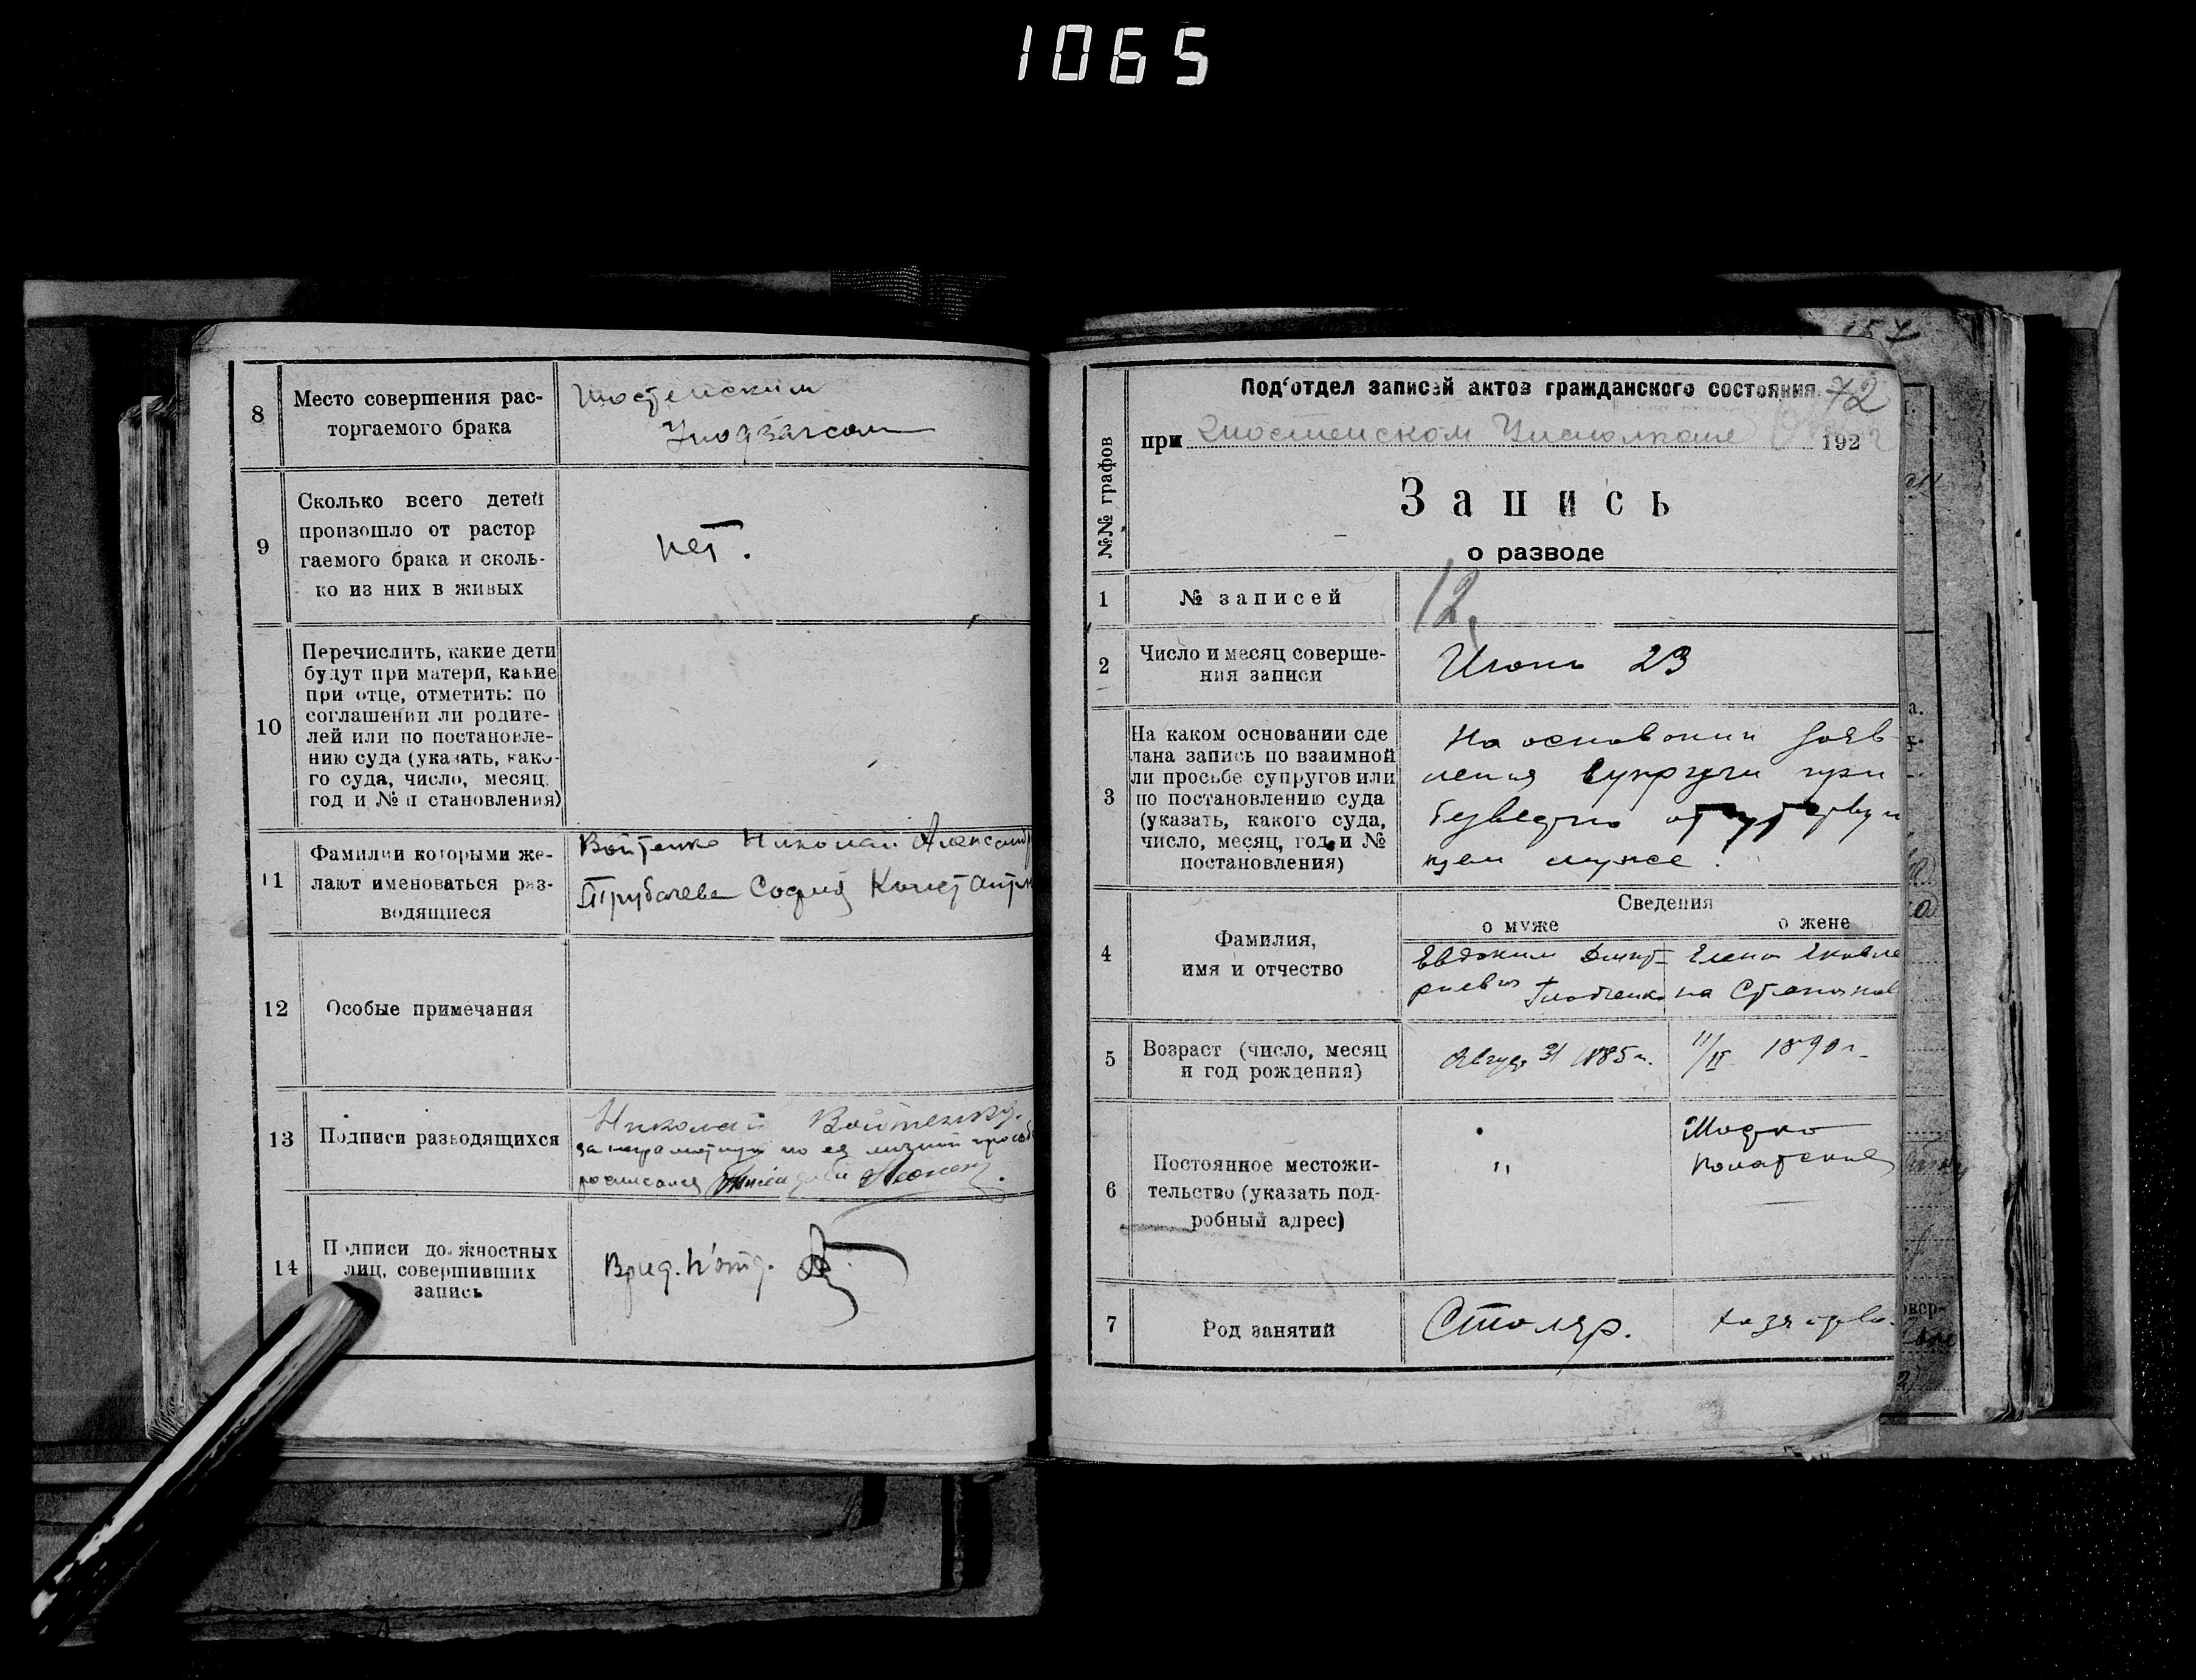 1065
8
Место совершения рас-
торгаемого брака
Шостенским
9
Сколько всего детей
произошло от растор
гаемого брака и сколь-
ко из них в живых
нет.
10
Перечислить, какие дети
будут при матери, какие
при отце, отметить: по
соглашении ли родите-
лей или по постановле-
нию суда (указать, како-
го суда, число, месяц,
год и № п становления)
11
Фамилии которыми же-
лают именоваться раз-
водящиеся
Войтенко Николай Александр
Трубачева София Константин
12
Особые примечания
13
Подписи разводящихся
Николай Войтенко.
за неграмотную по ея личной просьб
росписался
14
Подписи должностных
лиц, совершивших
запись
72
Под'отдел записей актов гражданского состояния
№№ графов
при Шостенском 192
Запись
о разводе
1
№ записей
12
2
Число и месяц соверше-
ния записи
Июнь 23
3
На каком основании сде
лана запись по взаимной
ли просьбе супругов или
по постановлению суда
(указать, какого суда,
число, месяц, год и №
постановления)
На основании заяв
ления супруги при
безвестно отсутствую
щем муже.
4
Фамилия,
имя и отчество
Сведения
о муже
о жене
Евдоким Дмит-
риевич
Елена Яковле
на Степанов
5
Возраст (число, месяц
и год рождения)
Август 31 1885 г.
11/II 1890 г.
6
Постоянное местожи-
тельство (указать под-
робный адрес)
"
7
Род занятий
Столяр.
хозяйство.